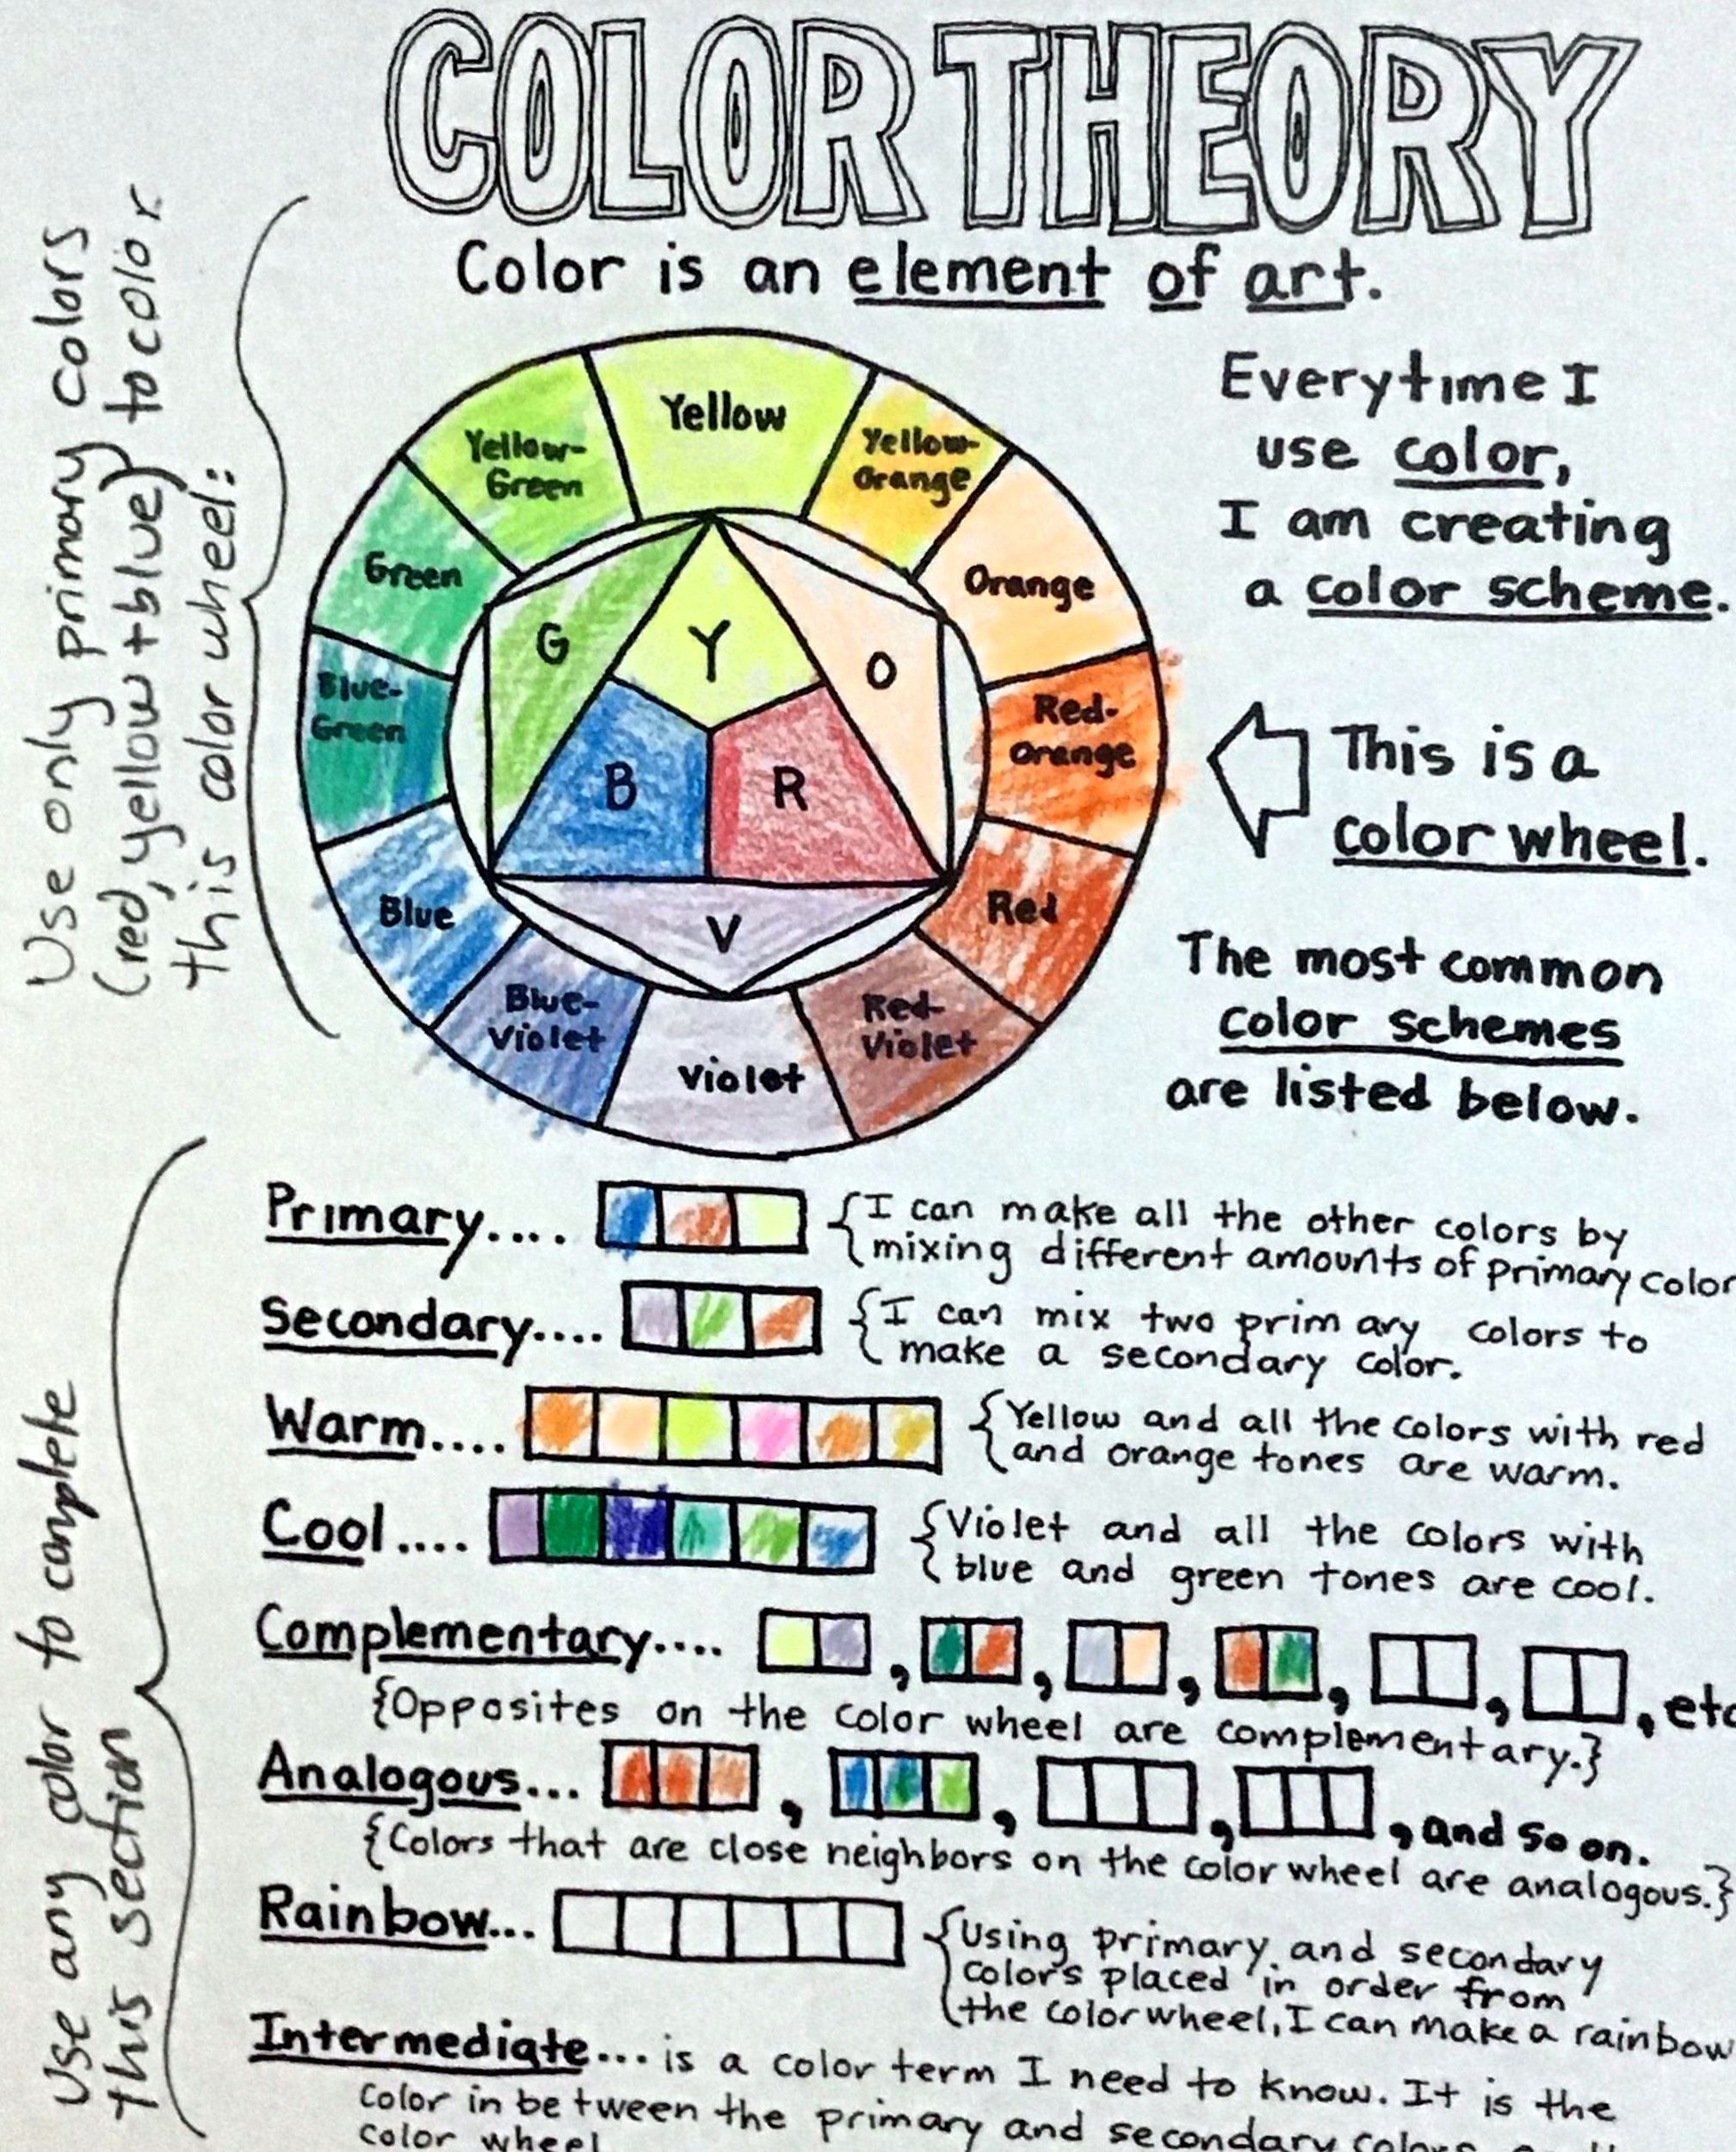 COLOR THEORY
Color is an element of art.
Use only primary colors
(red, yellow + blue) to color
this color wheel:
Yellow
Yellow-
Green
Yellow-
Orange
Green
Orange
Blue-
Green
Red-
Orange
Blue
Red
Blue-
Violet
Red-
Violet
Violet
G
Y
O
B
R
V
Everytime I
use color,
I am creating
a color scheme.
This is a
color wheel.
The most common
color schemes
are listed below.
Use any color to complete
this section
Primary.... {I can make all the other colors by
mixing different amounts of primary color
Secondary.... {I can mix two primary colors to
make a secondary color.
Warm.... {Yellow and all the colors with red
and orange tones are warm.
Cool.... {Violet and all the colors with
blue and green tones are cool.
Complementary.... , , , , , , etc
{Opposites on the color wheel are complementary.}
Analogous... , , , , and so on.
{Colors that are close neighbors on the color wheel are analogous.}
Rainbow... {Using primary and secondary
colors placed in order from
the color wheel, I can make a rainbow
Intermediate... is a color term I need to know. It is the
color in between the primary and secondary colors
color wheel